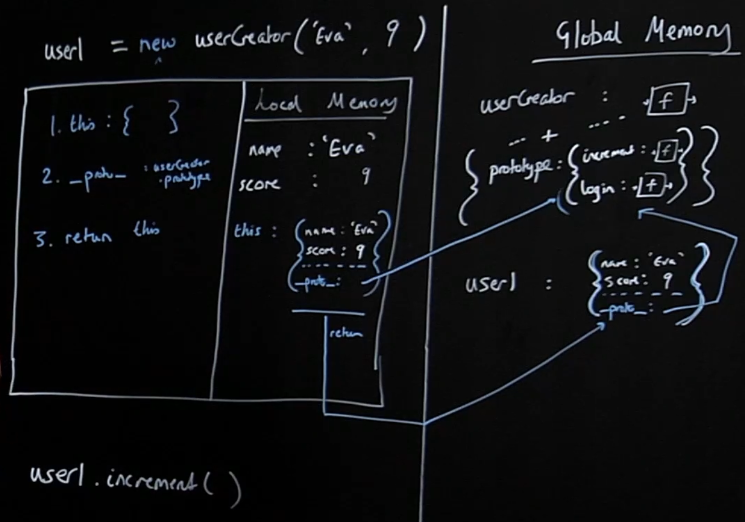 user1 = new userCreator('Eva', 9)
1. this : { }
2. __proto__ : userCreator
.prototype
3. return this
Local Memory
name : 'Eva'
score : 9
this : { name : 'Eva'
score : 9
__proto__ : }
return
Global Memory
userCreator : -[f]->
--- + ---
{ prototype : { increment : -[f]->
login : -[f]-> } }
user1 : { name : 'Eva'
score : 9
__proto__ : }
user1.increment( )